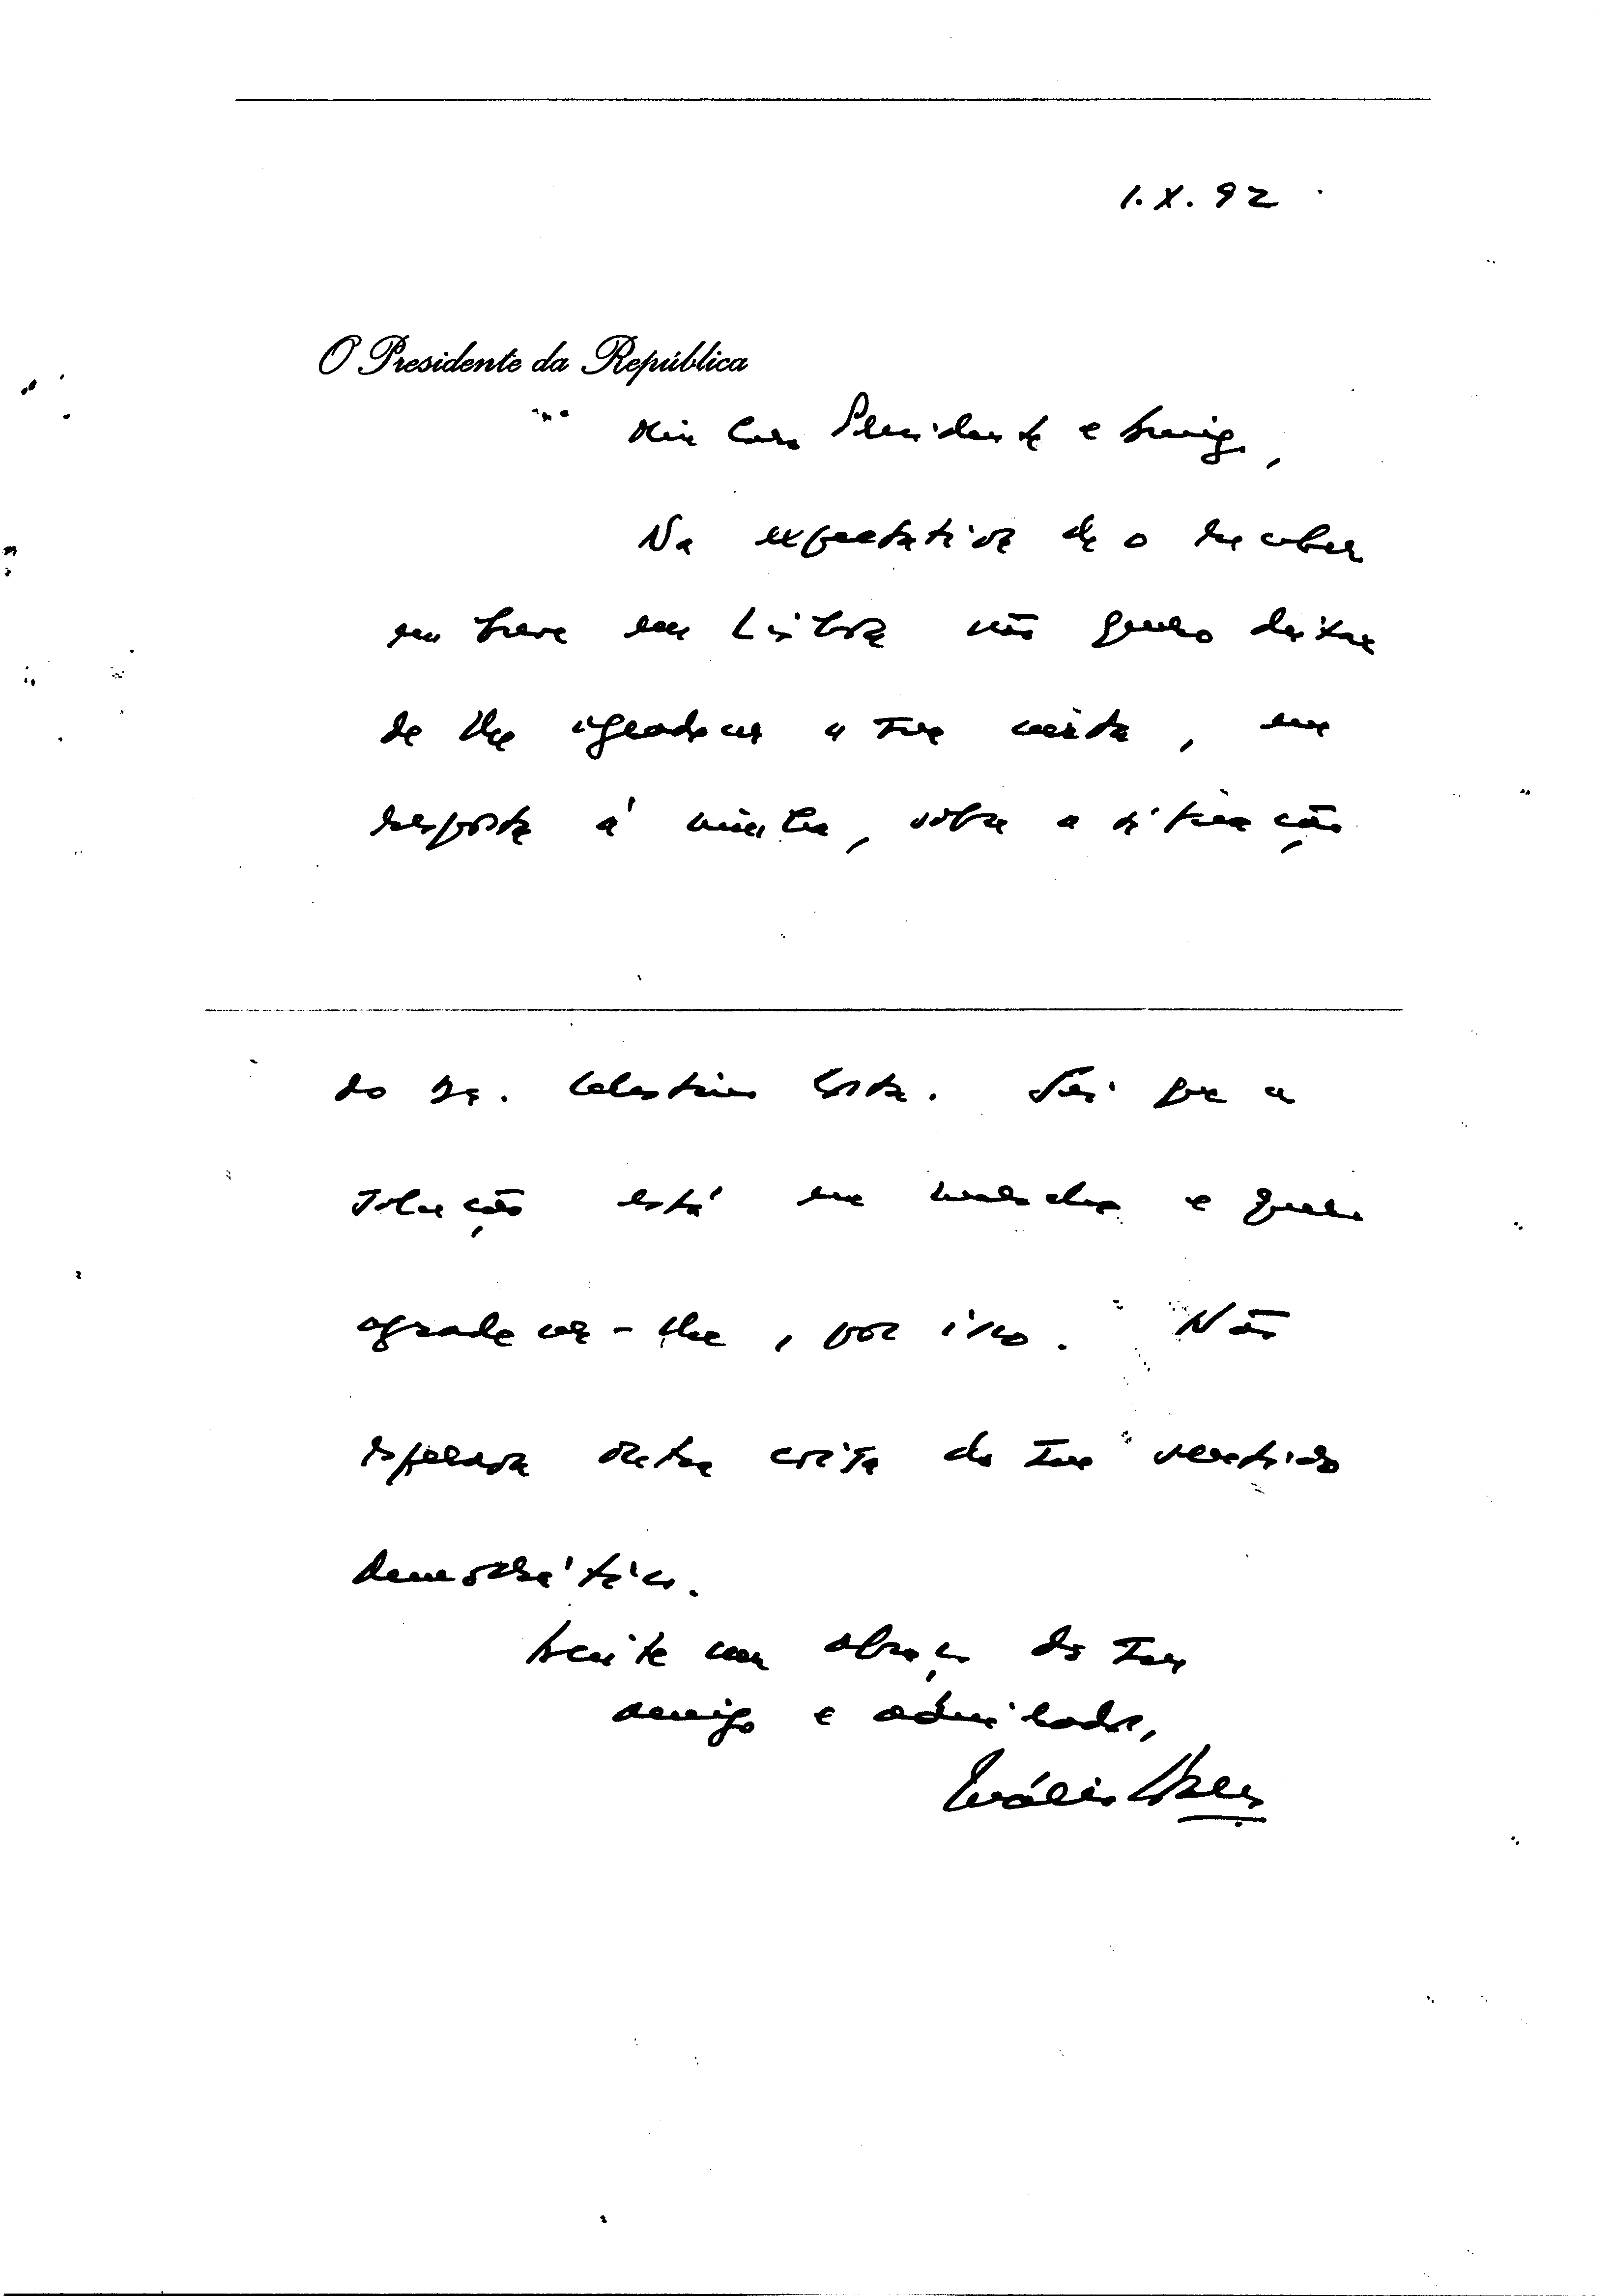 1.X.92
O Presidente da República
Meu Caro Presidente e Amigo,
Na expectativa de o receber
em breve em Lisboa não quero deixar
de lhe agradecer a sua carta, em
resposta à minha, sobre a situação
do Dr. Celestino Costa. Sei que a
solução está em marcha e quero
agradecer-lhe, por isso. Não
esperava outra coisa do seu sentido
democrático.
Aceite um abraço do seu
amigo e admirador,
Mário Soares